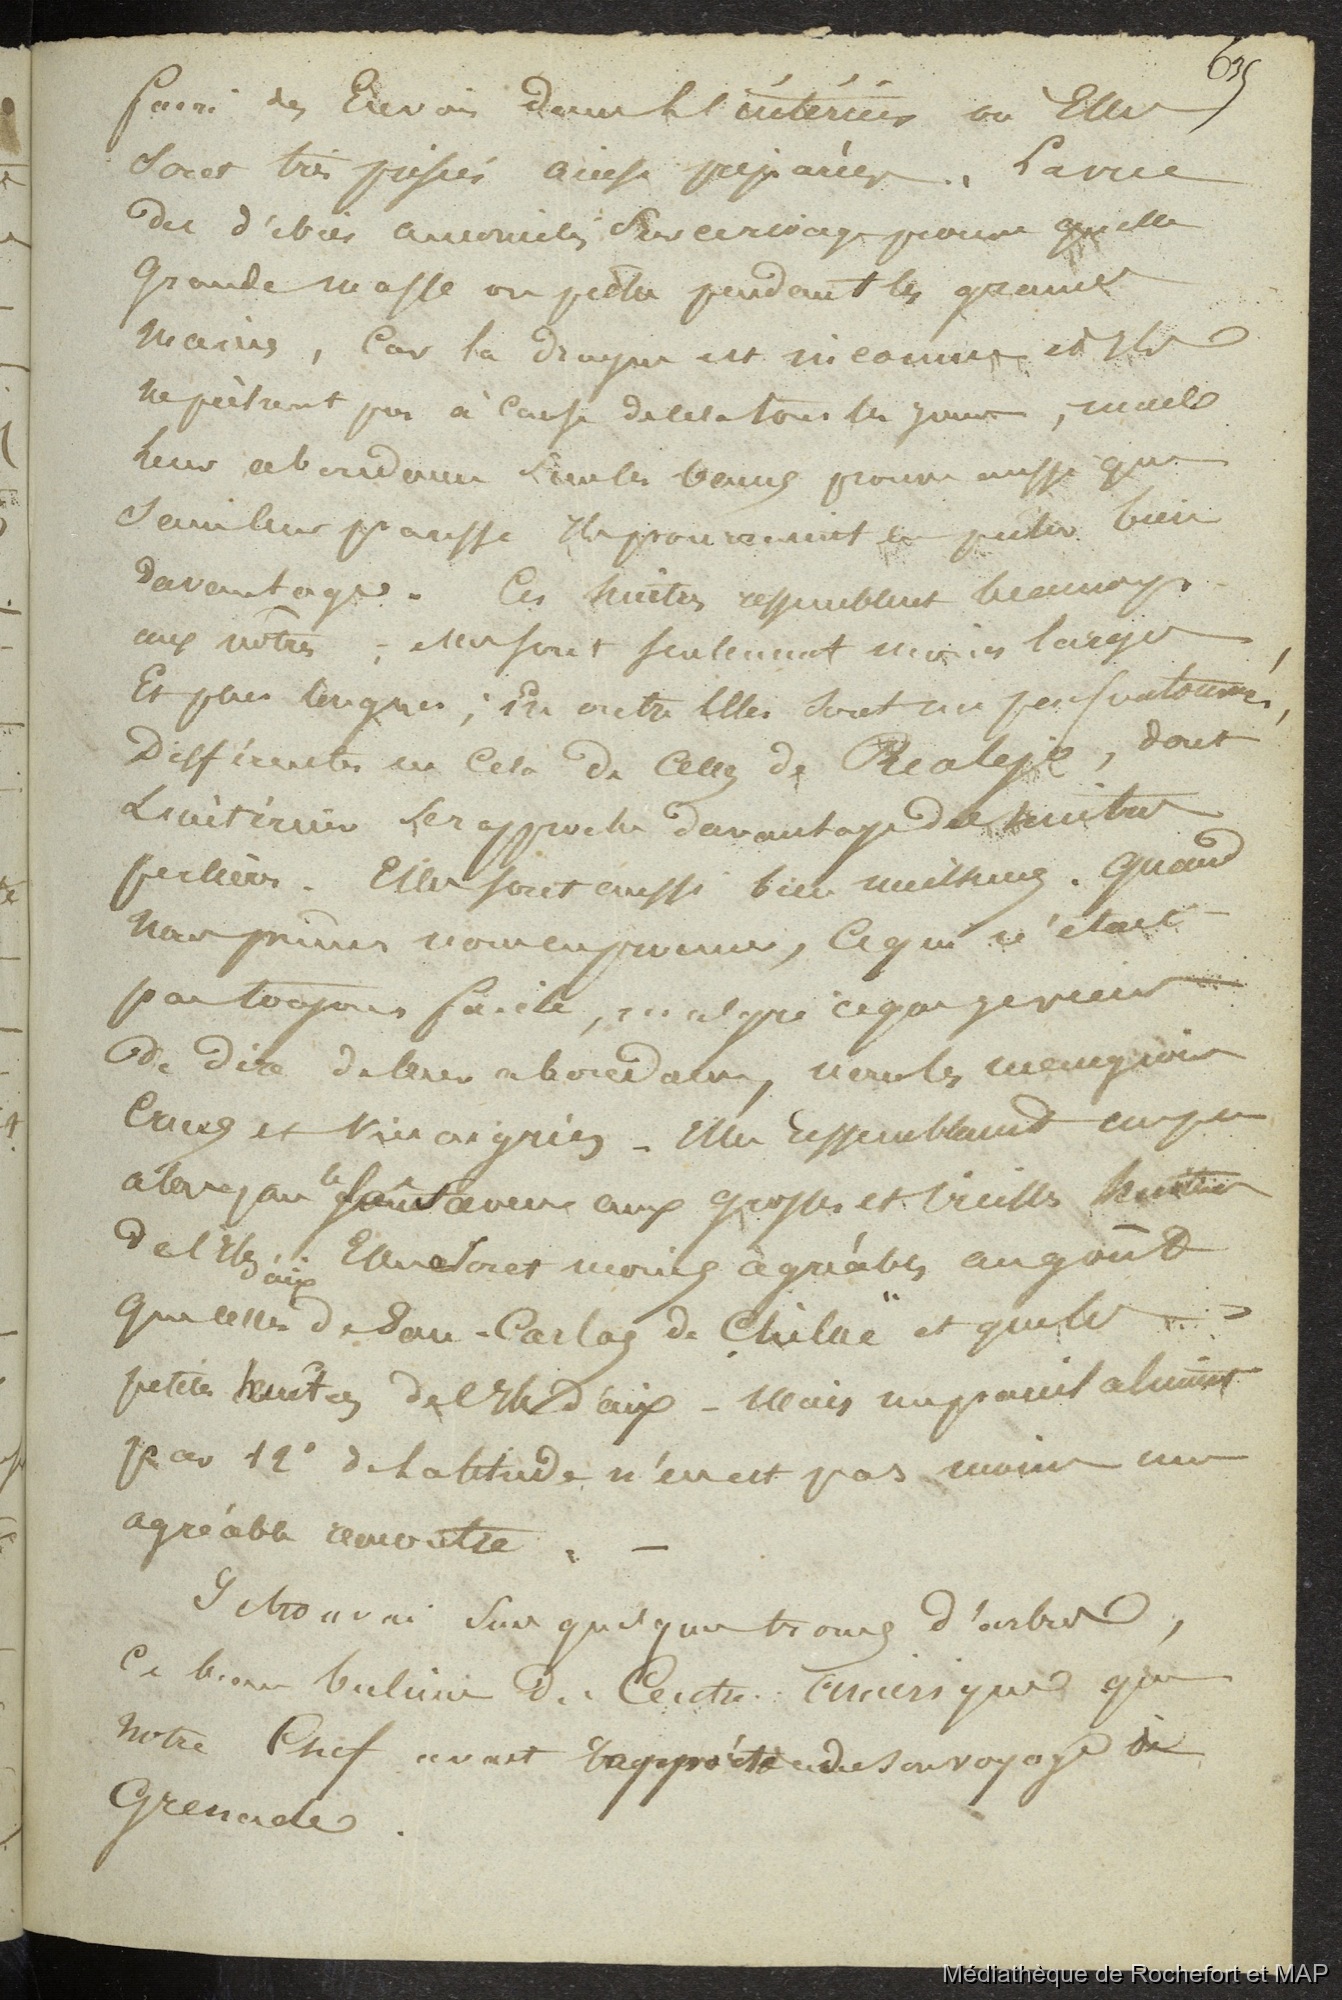 635
faire des Envois dans l'intérieur ou Elles
sont très prisées ainsi préparées. La vue
des débris amoncelés sur ce rivage prouve quelle
Grande masse on pêche pendant les grandes
marées, Car la drague est inconnue et Ils
ne pêchent pas à cause de cela tous les jours, mais
leur abondance sur les bancs prouve aussi que
sans leur paresse Ils pourraient en pêcher bien
davantage. Ces huîtres ressemblent beaucoup
aux nôtres ; elles sont seulement moins larges
Et plus longues ; En outre Elles sont un peu contournées,
Différentes en Cela de Celles de Realejo, dont
L'intérieur se rapproche davantage des huîtres
perlières. Elles sont aussi bien meilleures. Quand
nous pûmes nous en procurer, Ce qui n'était
pas toujours facile, malgré ce que je viens
De dire de leur abondance, nous les mangions
Crues et Vinaigrées – Elles ressemblaient un peu
alors par la saveur aux grosses et vieilles huîtres
de l'Ile d'aix. Elles sont moins agréables au goût
que celles de San-Carlos de Chiloë et que les
petites huîtres de l'Ile d'aix – Mais un pareil aliment
par 12° de latitude n'en est pas moins une
agréable rencontre. –
Je trouvai sur quelques troncs d'arbres,
Ce beau bulime du Centre Amérique que
notre Chef avait rapporté de son voyage à
Grenade.
Médiathèque de Rochefort et MAP